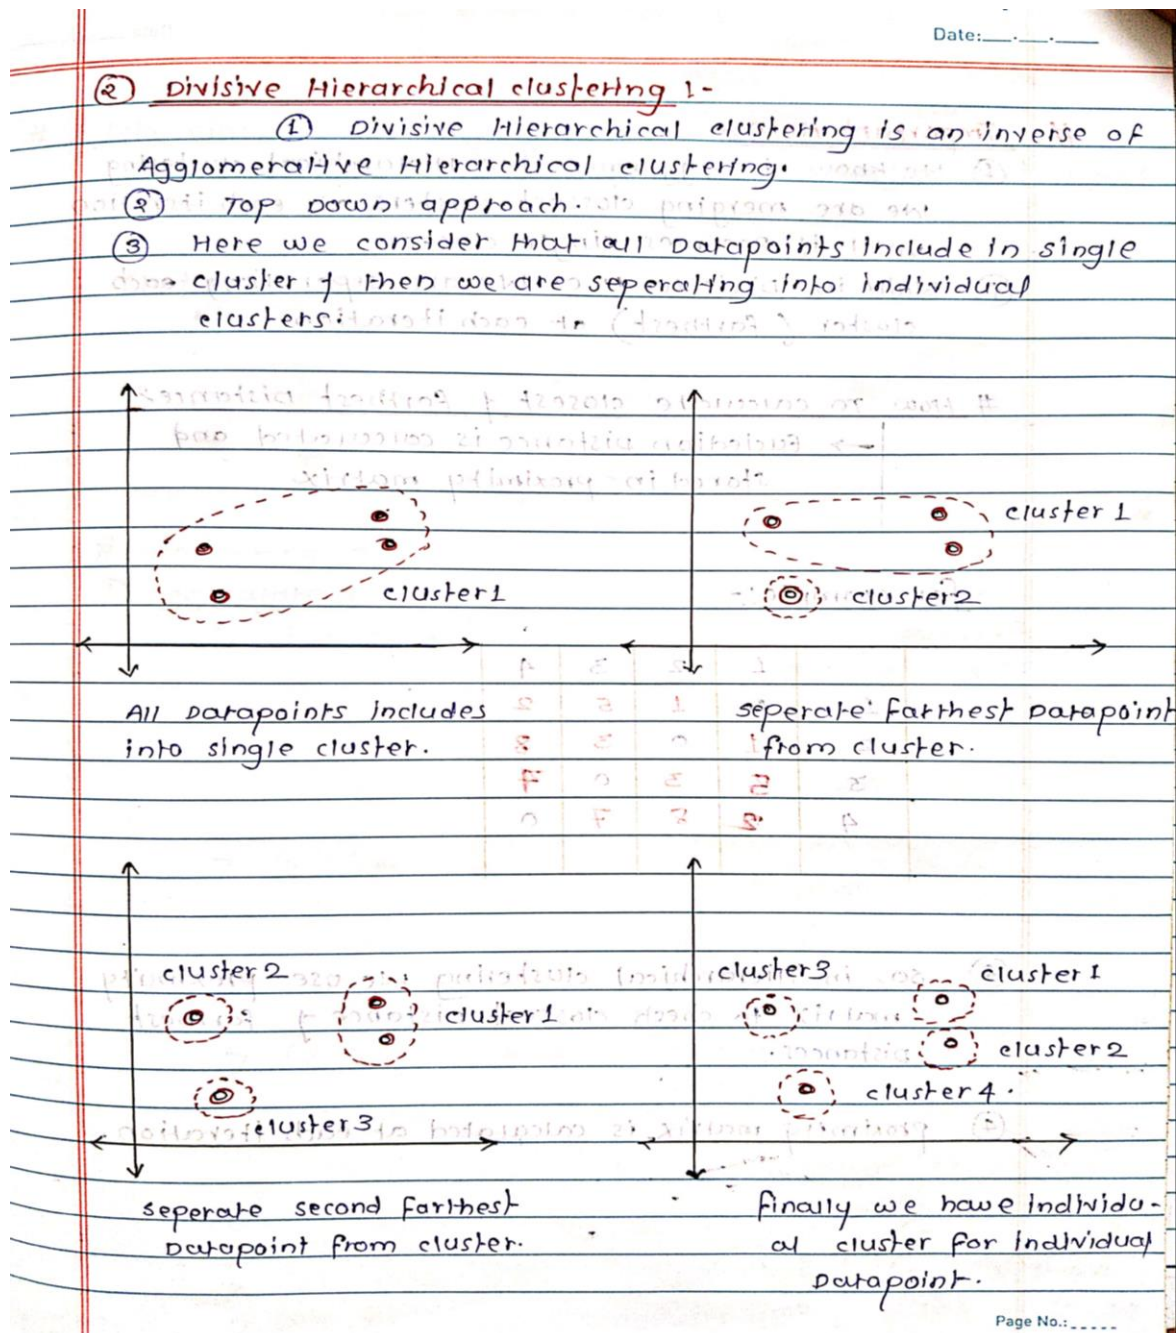 Date:__.__.__
② Divisive Hierarchical clustering :-
① Divisive Hierarchical clustering is an inverse of
Agglomerative Hierarchical clustering.
② Top Down approach.
③ Here we consider that all Datapoints include in single
cluster & then we are seperating into individual
clusters.
cluster 1
cluster1
cluster2
All Datapoints includes
into single cluster.
seperate farthest Datapoint
from cluster.
cluster 2
cluster 1
cluster 3
cluster3
cluster 1
cluster 2
cluster 4.
seperate second farthest
Datapoint from cluster.
finally we have individu-
al cluster for individual
Datapoint.
Page No.:_____